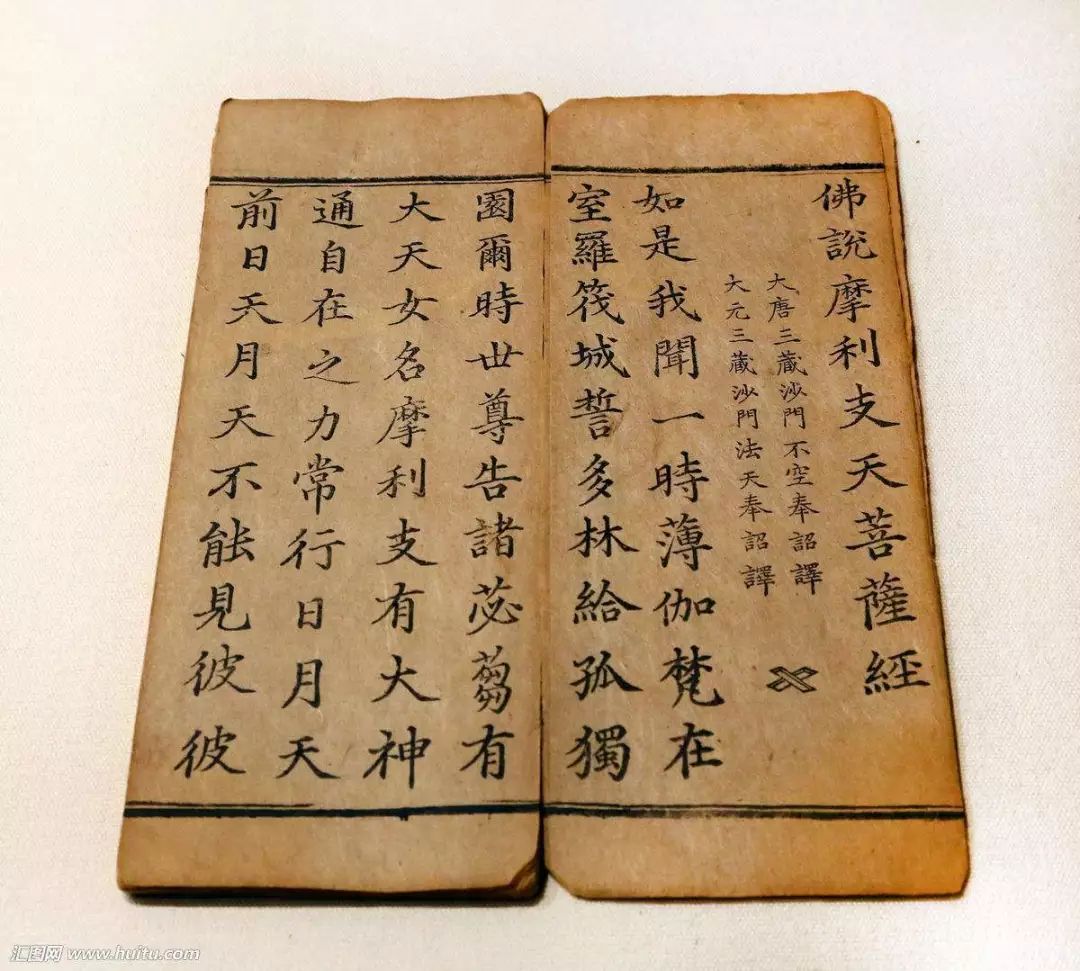 佛說摩利支天菩薩經
大唐三藏沙門不空奉詔譯
大元三藏沙門法天奉詔譯
如是我聞一時薄伽梵在
室羅筏城誓多林給孤獨
園爾時世尊告諸苾蒭有
大天女名摩利支有大神
通自在之力常行日月天
前日天月天不能見彼彼
汇图网 www.huitu.com